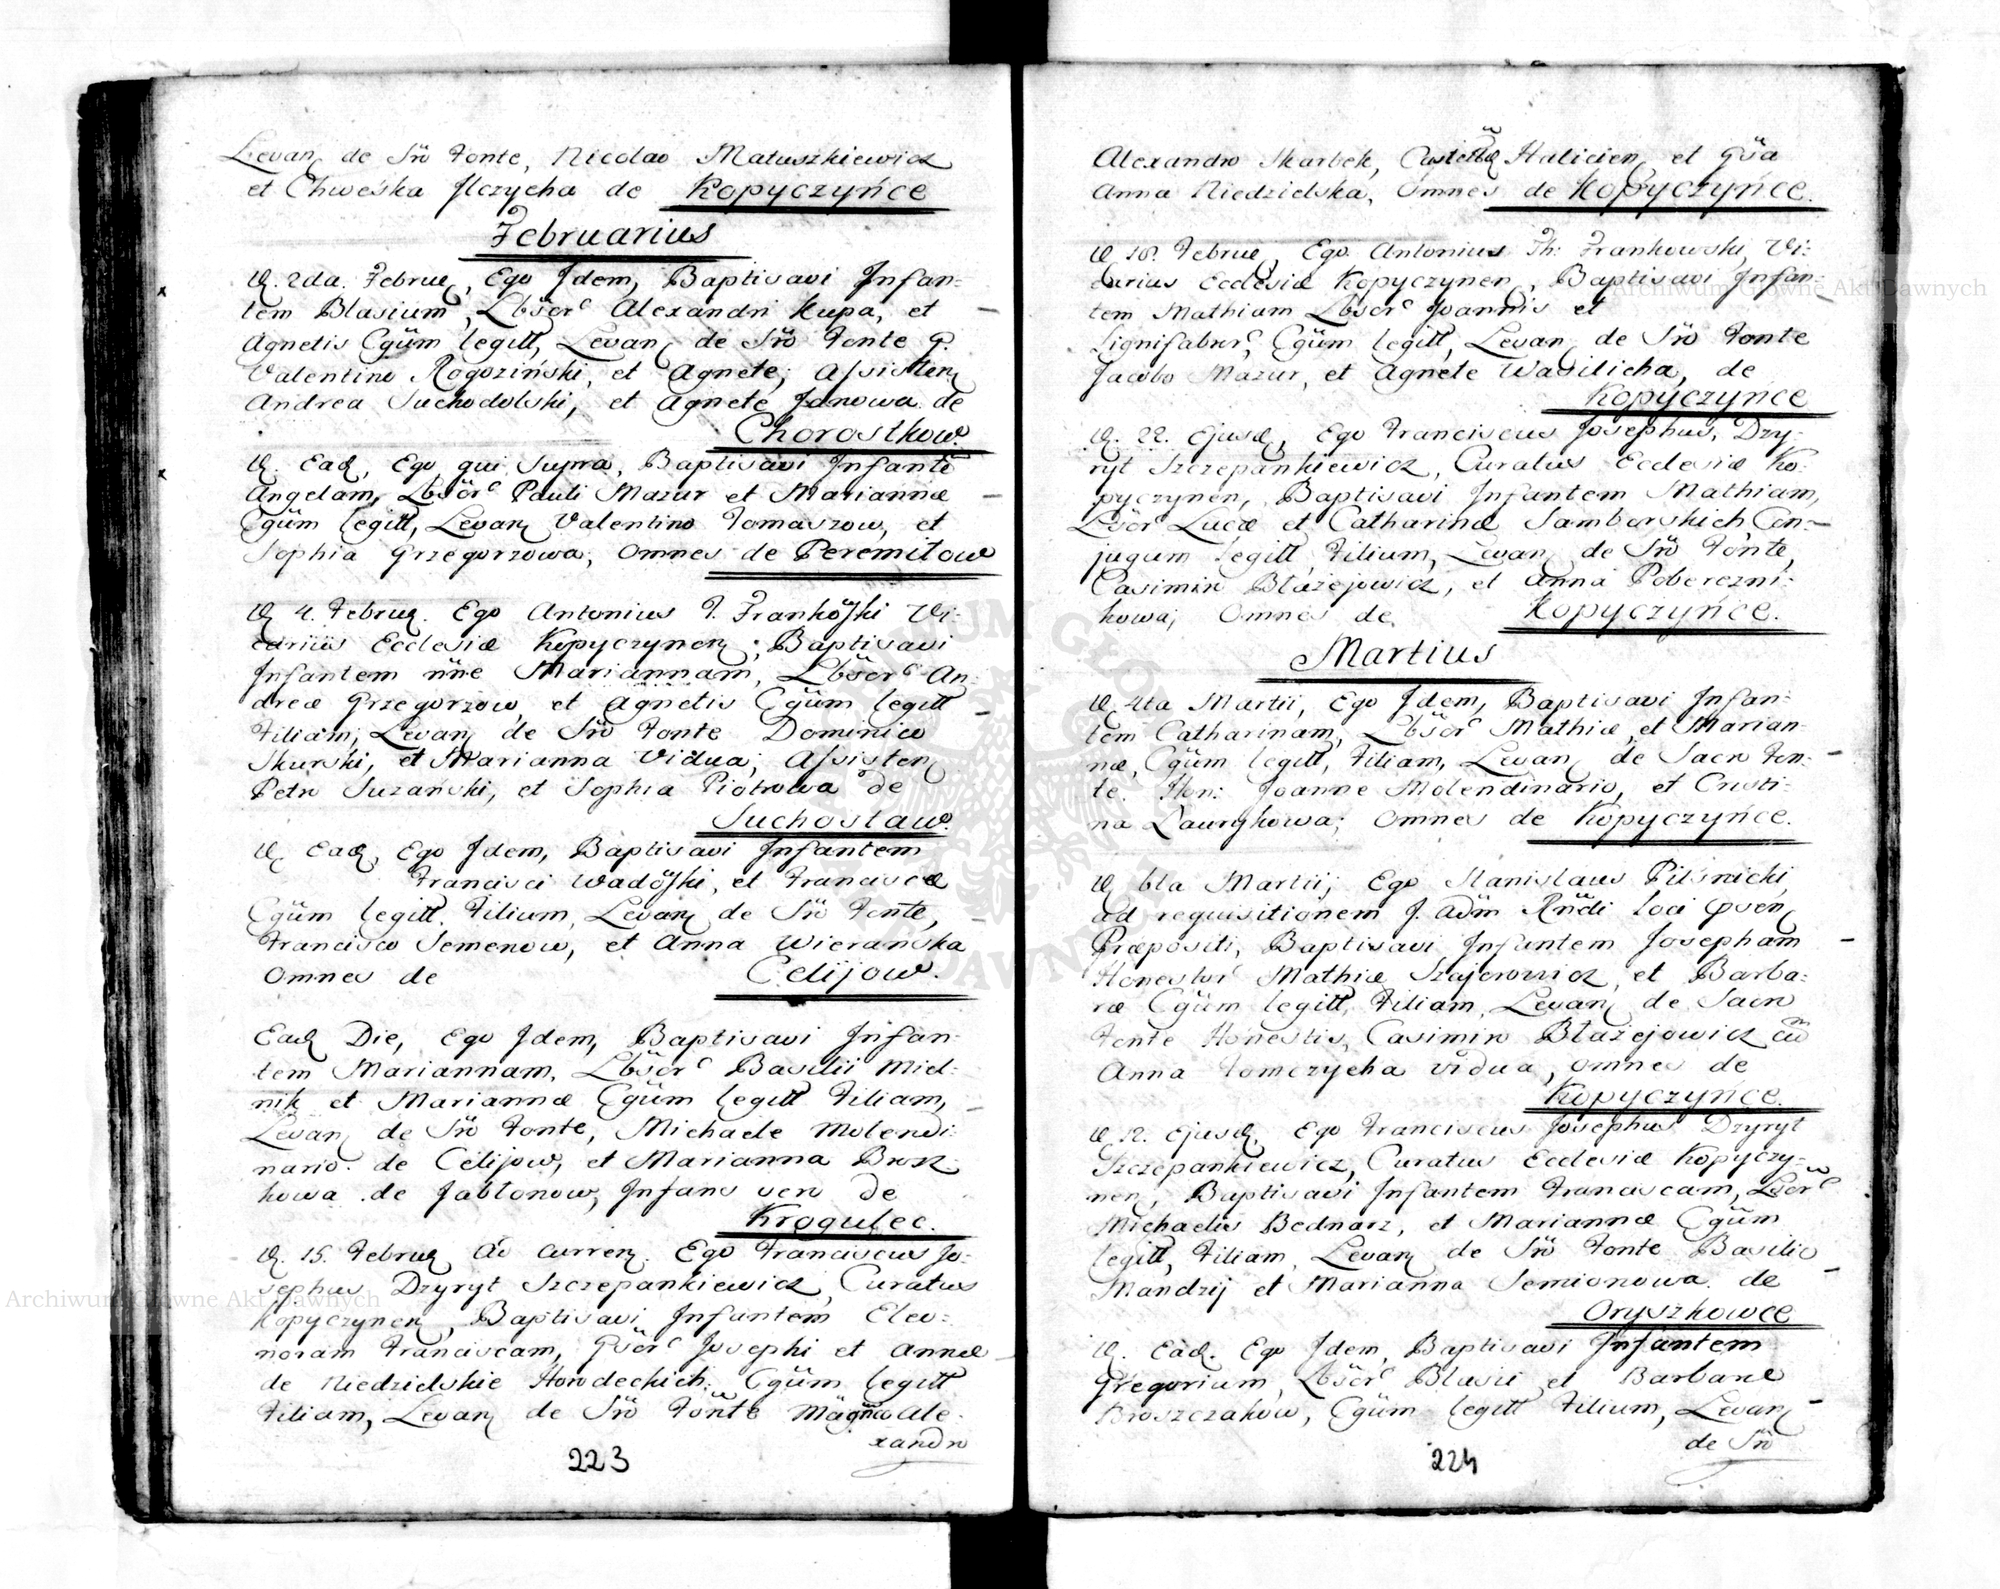 Levanᵗ de Srō Fonte, Nicolao Matuszkiewicz
et Chweśka Ilczycha de Kopyczyńce
Februarius
D. 2da. Februaʳ, Ego Idem, Baptisavi Infan=
tem Blasium, Lbsorᶜ Alexandri Kupa, et
Agnetis Cgūm legitt, Levanᵗ de Srō Fonte G.
Valentino Rogoziński, et Agnete; Assistenᵗ
Andrea Suchodolski, et Agnete Janowa de
Chorostkow.
D. Ead, Ego qui Supra, Baptisavi Infantē
Angelam, Lbsorᶜ Pauli Mazur et Mariannæ
Cgūm legitt, Levanᵗ Valentino Tomaszow, et
Sophia Grzegorzowa, omnes de Peremilow
D. 4. Februaʳ. Ego Antonius T. Frankōski Vi=
carius Ecclesiæ Kopyczynenᵗ; Baptisavi
Infantem nīne Mariannam, Lbsorᶜ An=
dreæ Grzegorzow, et Agnetis Cgūm legitt
Filiam; Levanᵗ de Srō Fonte Dominico
Skurski, et Marianna Vidua; Assistenᵗ
Petro Suzański, et Sophia Piotrowa de
Suchostaw.
D. Ead, Ego Idem, Baptisavi Infantem
Francisci Wadōski, et Franciscæ
Cgūm legitt. Filium, Levanᵗ de Srō Fonte,
Francisco Semenow, et Anna Wierańska
omnes de Celijow.
Ead Die, Ego Idem, Baptisavi Infan=
tem Mariannam, Lbsorᶜ Basilii Miel=
nik et Mariannæ Cgūm legitt Filiam,
Levanᵗ de Srō Fonte, Michaele Molendi=
nario. de Celijow, et Marianna Brosz=
kowa de Jabłonow, Infans vero de
Krogulec.
D. 15. Februaʳ Ao currenᵗ. Ego Franciscus Jo=
sephus Dzyryt Szczepankiewicz, Curatus
Kopyczynenᵗ, Baptisavi Infantem Eleo=
noram Franciscam, Gsorᶜ Josephi et Annæ
de Niedzielskie Horodeckich. Cgūm legitt
Filiam, Levanᵗ de Srō Fonte Magnco Ale=
xandro
223
Alexandro Skarbek, Castellæ Haliciensᵗ et Gsa
Anna Niedzielska, omnes de Kopyczyńce.
D. 18. Februaʳ, Ego Antonius Th: Frankowski, Vi=
carius Ecclesiæ Kopyczynenᵗ, Baptisavi Infan=
tem Mathiam Lbsorᶜ Joannis et
Lignifabrorᶜ, Cgūm legitt, Levanᵗ de Srō Fonte
Jacobo Mazur, et Agnete Wasilicha, de
Kopyczyńce
D. 22. Ejusd, Ego Franciscus Josephus, Dzy=
ryt Szczepankiewicz, Curatus Ecclesiæ Ko=
pyczynen, Baptisavi Infantem Mathiam,
Lsorᶜ Lucæ et Catharinæ Samborskich Con=
jugum legitt, Filium, Levanᵗ de Srō Fonte,
Casimiro Błażejowicz, et Anna Pobereźni=
kowa; omnes de Kopyczyńce.
Martius
D. 4ta Martii, Ego Idem, Baptisavi Infan=
tem Catharinam, Lbsorᶜ Mathiæ, et Marian=
næ, Cgūm legitt, Filiam, Levanᵗ de Sacro Fon=
te. Hon: Joanne Molendinario, et Cristi=
na Lawrykowa; omnes de Kopyczyńce.
D. 6ta Martii, Ego Stanislaus Pilśnicki,
ad requisitionem J. Adm Rndi Loci Psenᵗ
Præpositi, Baptisavi Infantem Josepham
Honestorᶜ Mathiæ Szajerowicz, et Barba=
ræ Cgūm legitt, Filiam, Levanᵗ de Sacro
Fonte Honestis, Casimiro Błażejowicz cū
Anna Tomczycha vidua, omnes de
Kopyczyńce.
D. 12. Ejusd. Ego Franciscus Josephus Dzyryt
Szczepankiewicz, Curatus Ecclesiæ Kopyczy=
nen, Baptisavi Infantem Franciscam, Lsorᶜ
Michaelis Bednarz, et Mariannæ Cgūm
legitt, Filiam, Levanᵗ de Srō Fonte Basilio
Mandzij et Marianna Semionowa. de
Oryszkowce
D. Ead. Ego Idem, Baptisavi Infantem
Gregorium, Lbsorᶜ Blasii et Barbaræ
Broszczakow, Cgūm legitt Filium, Levanᵗ
de Srō
224
Archiwum Główne Akt Dawnych
Archiwum Główne Akt Dawnych